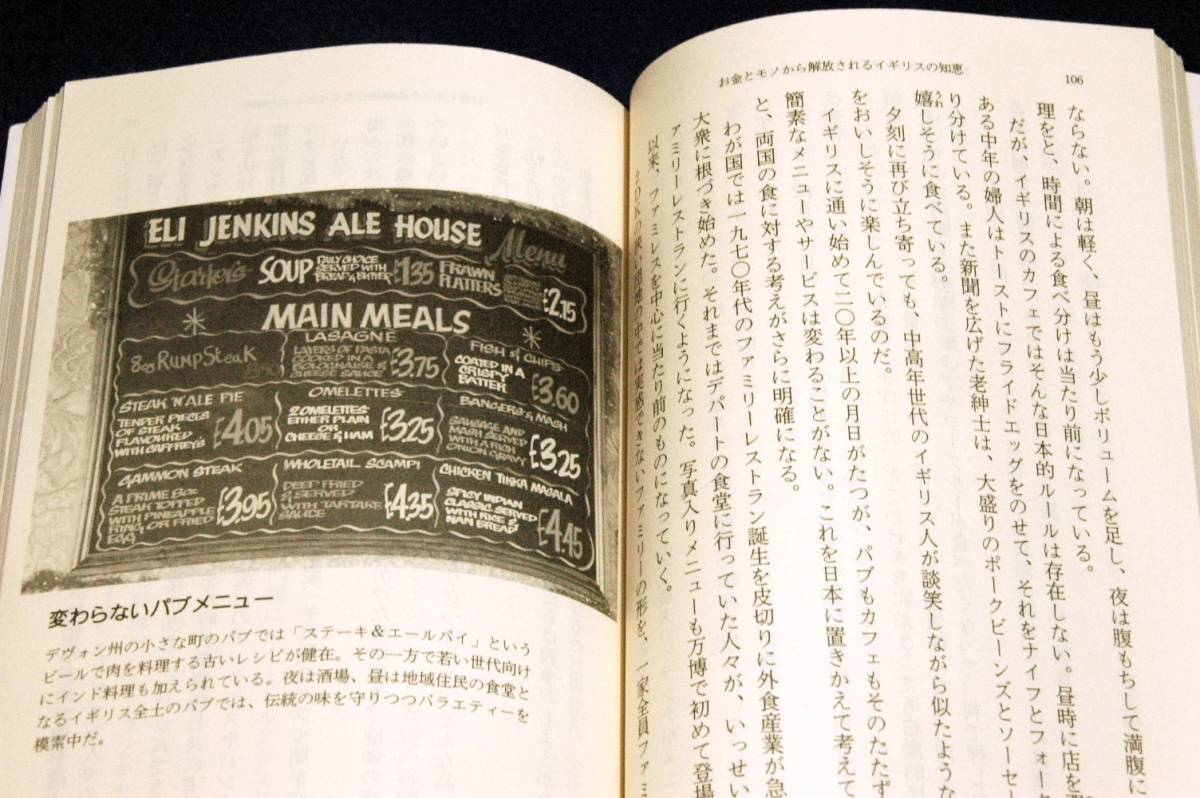 ELI JENKINS ALE HOUSE
Menu
Starters
SOUP
DAILY CHOICE
SERVED WITH
BREAD & BUTTER
£1.35
PRAWN
PLATTERS
£2.15
MAIN MEALS
8oz RUMP STEAK
LASAGNE
LAYERS OF PASTA
COOKED IN A
BOLOGNAISE &
CHEESE SAUCE
£3.75
FISH & CHIPS
COATED IN A
CRISPY
BATTER
£3.60
STEAK 'N' ALE PIE
TENDER PIECES
OF STEAK
FLAVOURED
WITH CAFFREYS
£4.05
OMELETTES
2 OMELETTES
EITHER PLAIN
OR
CHEESE & HAM
£3.25
BANGERS & MASH
SAUSAGE AND
MASH SERVED
WITH A RICH
ONION GRAVY
£3.25
GAMMON STEAK
A PRIME 8oz
STEAK TOPPED
WITH PINEAPPLE
RING OR FRIED
EGG
£3.95
WHOLETAIL SCAMPI
DEEP FRIED
& SERVED
WITH TARTARE
SAUCE
£4.35
CHICKEN TIKKA MASALA
SPICY INDIAN
CLASSIC SERVED
WITH RICE &
NAN BREAD
£4.45
変わらないパブメニュー
デヴォン州の小さな町のパブでは「ステーキ&エールパイ」という
ビールで肉を料理する古いレシピが健在。その一方で若い世代向け
にインド料理も加えられている。夜は酒場、昼は地域住民の食堂と
なるイギリス全土のパブでは、伝統の味を守りつつバラエティーを
模索中だ。
お金とモノから解放されるイギリスの知恵
106
ならない。朝は軽く、昼はもう少しボリュームを足し、夜は腹もちして満腹に
理をと、時間による食べ分けは当たり前になっている。
だが、イギリスのカフェではそんな日本的ルールは存在しない。昼時に店を
ある中年の婦人はトーストにフライドエッグをのせて、それをナイフとフォーク
り分けている。また新聞を広げた老紳士は、大盛りのポークビーンズとソーセー
嬉しそうに食べている。
うれ
夕刻に再び立ち寄っても、中高年世代のイギリス人が談笑しながら似たような
をおいしそうに楽しんでいるのだ。
イギリスに通い始めて二〇年以上の月日がたつが、パブもカフェもそのたたず
簡素なメニューやサービスは変わることがない。これを日本に置きかえて考えて
と、両国の食に対する考えがさらに明確になる。
わが国では一九七〇年代のファミリーレストラン誕生を皮切りに外食産業が急
大衆に根づき始めた。それまではデパートの食堂に行っていた人々が、いっせい
ァミリーレストランに行くようになった。写真入りメニューも万博で初めて登場
以来、ファミレスを中心に当たり前のものになっていく。
団地の中では実感できないファミリーの形を、一家全員ファミ